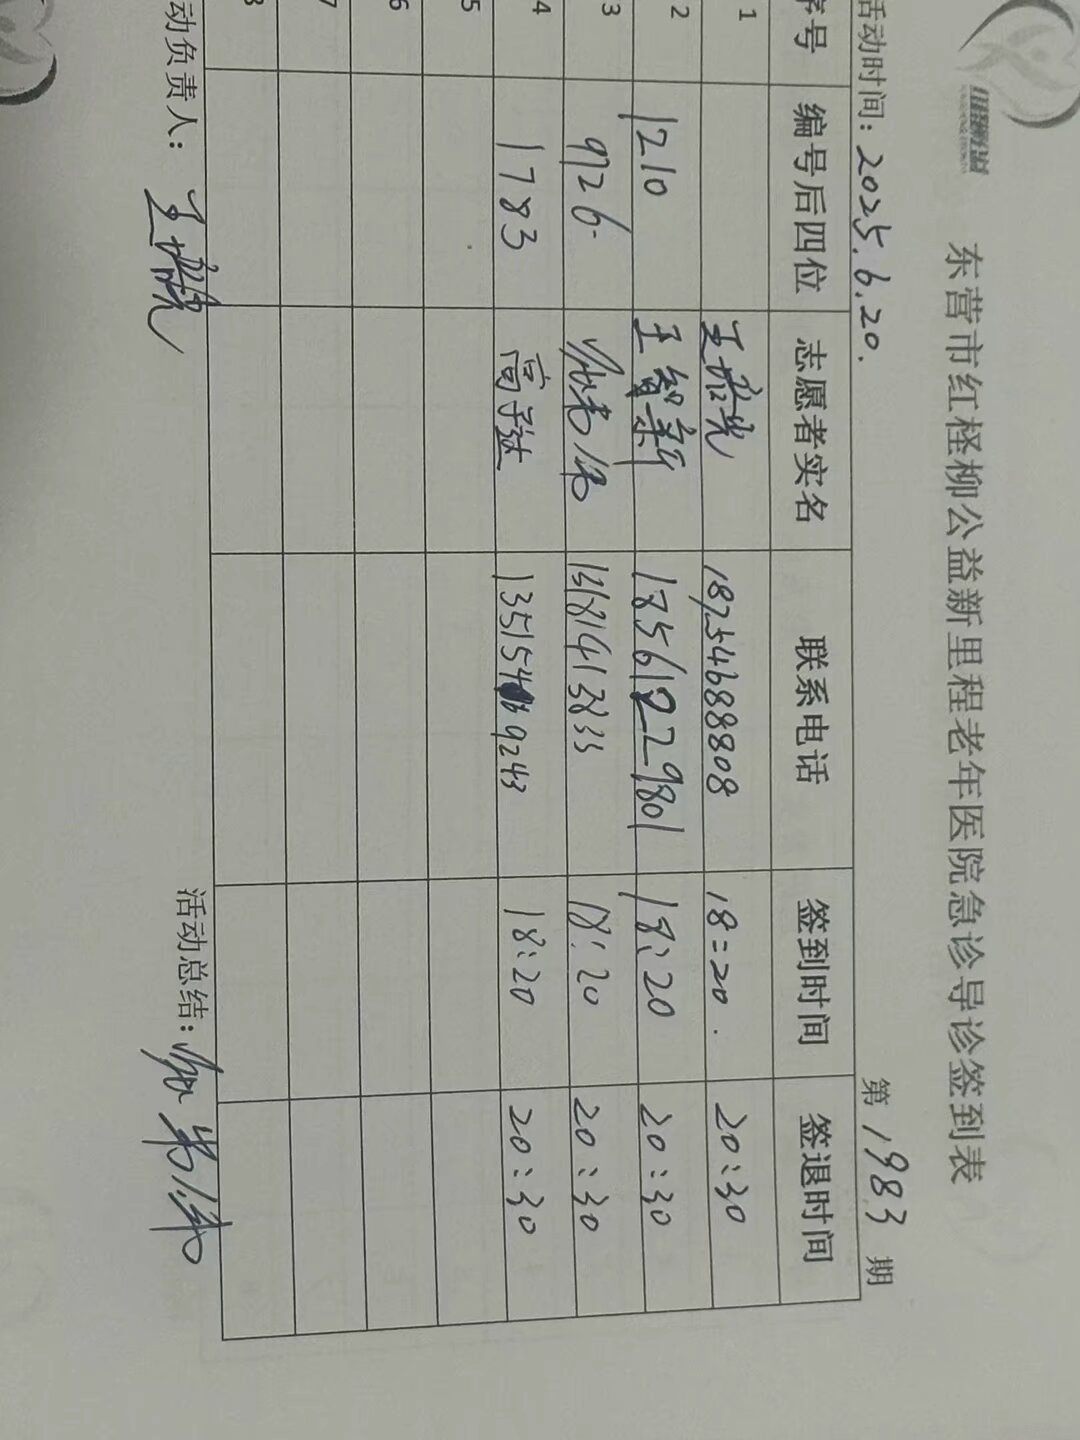 东营市红柽柳公益新里程老年医院急诊导诊签到表
活动时间：2025.6.20. 第1983期
序号 编号后四位 志愿者实名 联系电话 签到时间 签退时间
1 18754688808 18:20. 20:30
2 1210 王智新 18561822980 18:20 20:30
3 926. 13181413833 18:20 20:30
4 1783 高子达 13515469243 18:20 20:30
5
6
7
8
动负责人： 活动总结：